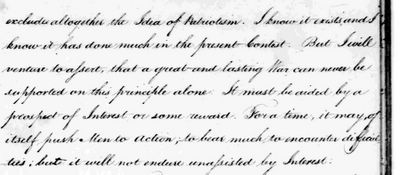 exclude altogether the Idea of Patriotism. I know it exists, and I
know it has done much in the present Contest. But I will
venture to assert, that a great and lasting War can never be
supported on this principle alone. It must be aided by a
prospect of Interest or some reward. For a time, it may, of
itself push Men to Action; to bear much to encounter difficul
ties; but it will not endure unassisted by Interest.